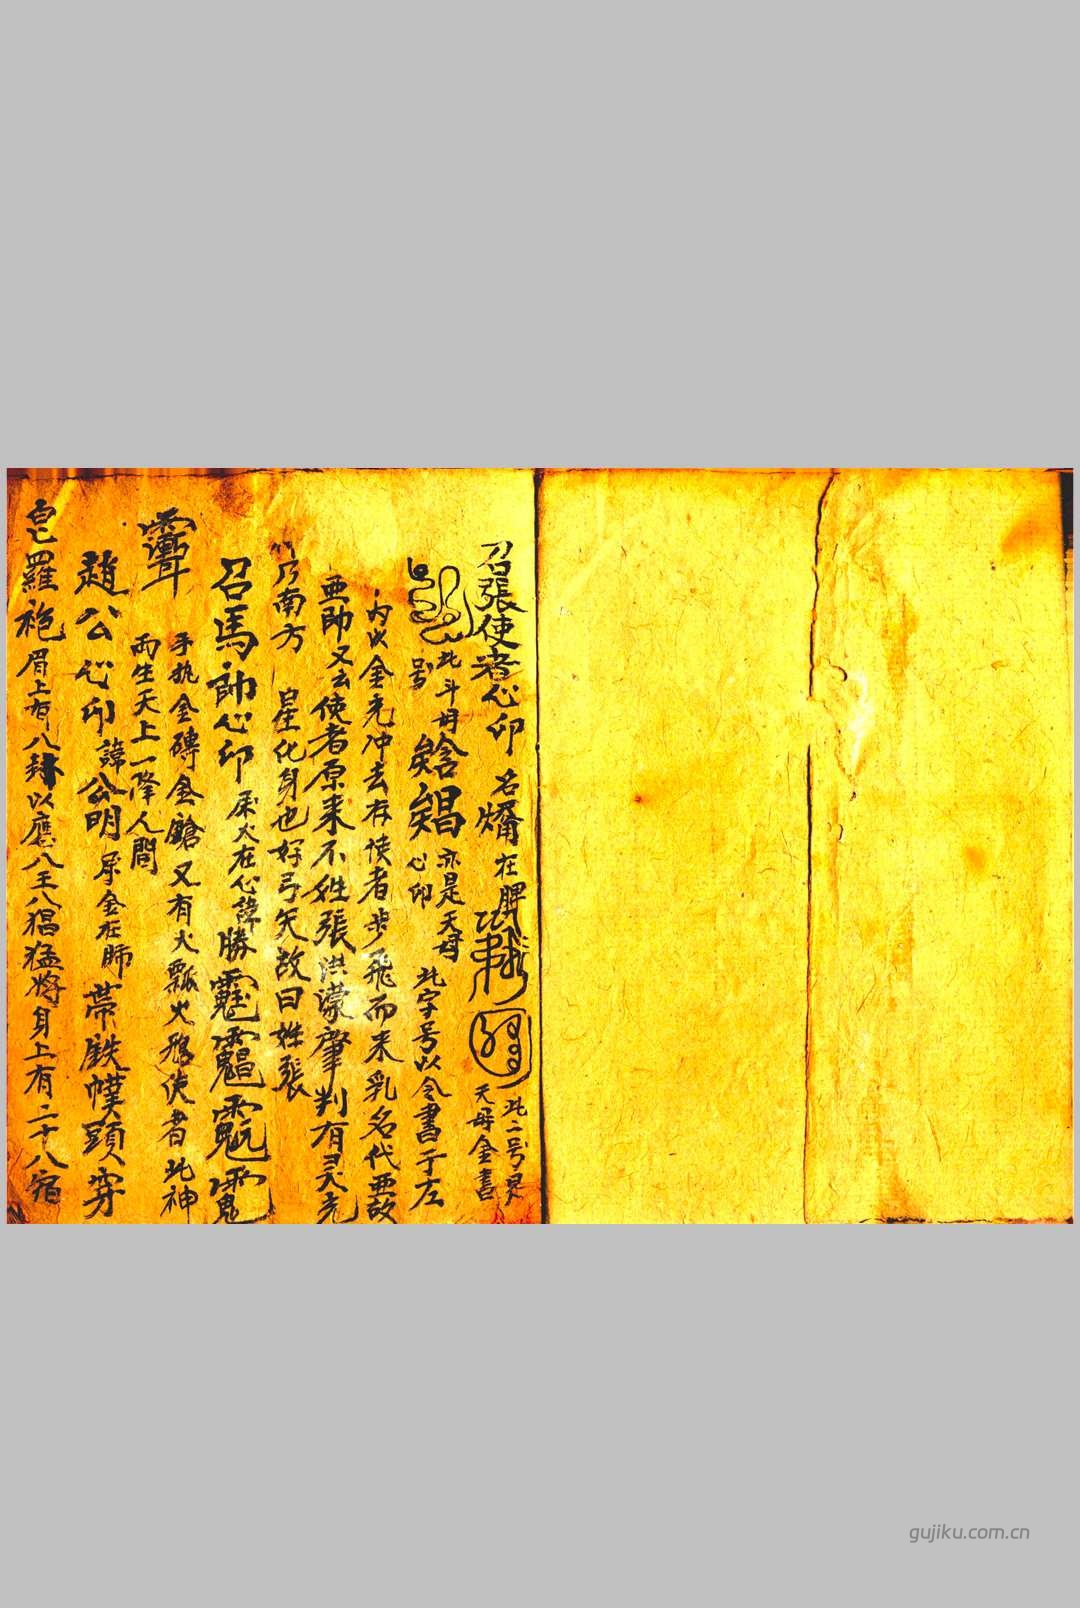 召張使者心印 名燆在脾 此二号是天母金書
号 北斗母 心印 亦是天母 此字号以令書于左
内以金光冲去存使者步飛而来乳名代亜故
亜帥又云使者原来不姓張洪濛肇判有灵光
乃南方 星化身也好弓矢故曰姓張
召馬帥心印 属火在心諱勝
手执金磚金鎗又有火瓢火鴉使者此神
両生天上一降人間
趙公心印諱公明属金在肺带鉄幞頭穿
皂羅袍眉上有八卦以應八王八猖猛将身上有二十八宿
gujiku.com.cn